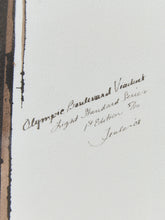 Olympic Boulevard Viaduct
Light Standard Series
1st Edition